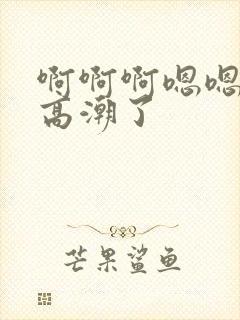 啊啊啊嗯嗯
高潮了
芒果鲨鱼